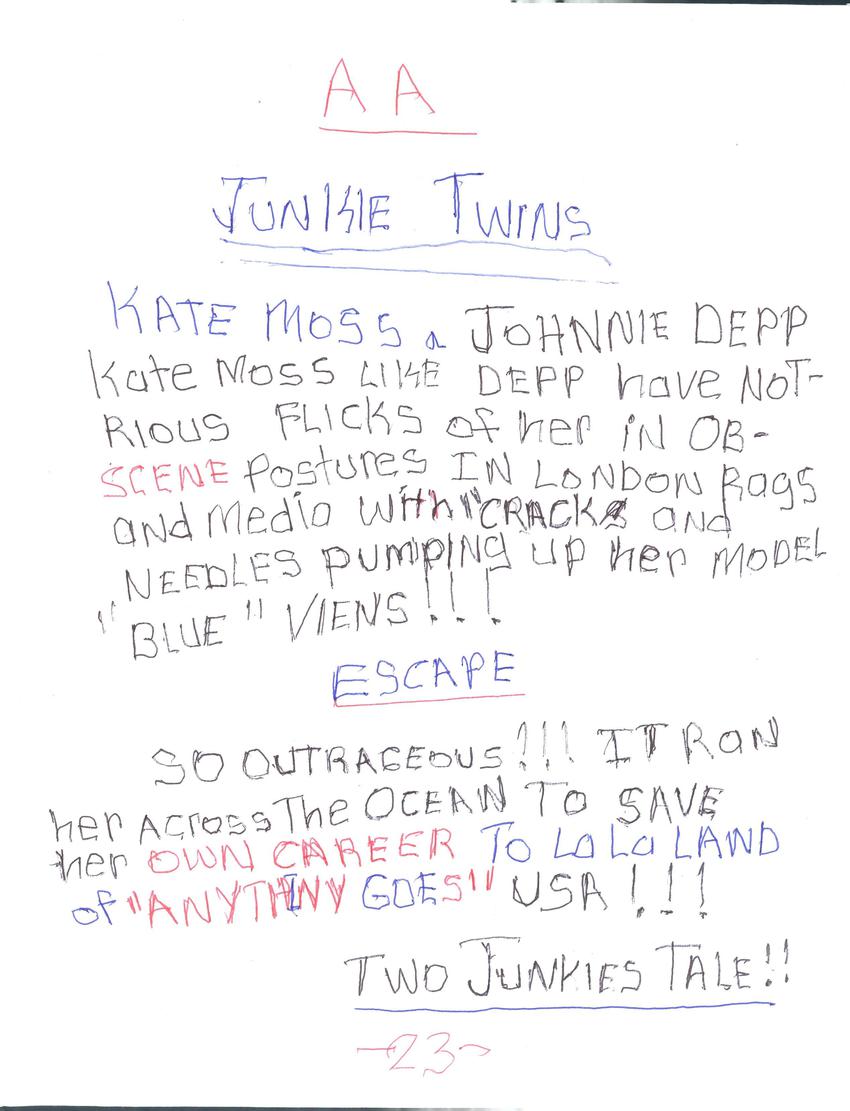 A A
JUNKIE TWINS
KATE MOSS & JOHNNIE DEPP
Kate MOSS LIKE DEPP have NOT-
RIOUS FLICKS of her iN OB-
SCENE Postures IN LONDON Rags
and Media With "CRACK" and
NEEDLES pumpINg up her MODEL
"BLUE" VIENS!!!
ESCAPE
SO OUTRAGEOUS!!! IT RaN
her AcrossThe OCEAN TO SAVE
her OWN CAREER To La La LAND
of "ANYTHINY GOES" USA!!!
TWO JUNKIES TALE!!
-23-